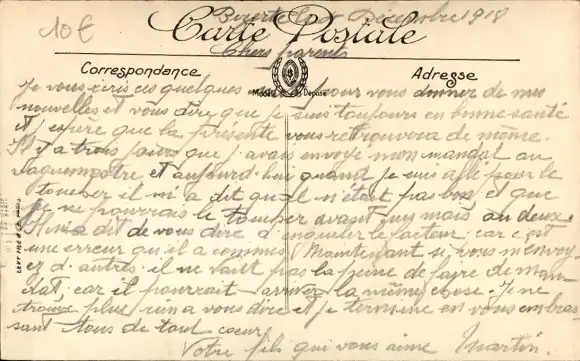 10€
Bizerte le Décembre 1918
Carte Postale
Chers parents
Correspondance
Adresse
Modèle Déposé
Je vous écris ces quelques pour vous donner de mes
nouvelles et vous dire que je suis toujours en bonne santé
et j'espère que la présente vous retrouvera de même.
Il y a trois jours que j'avais envoyé mon mandat au
vaguemestre et aujourd'hui quand je suis allé pour le
toucher il m'a dit qu'il n'était pas bon et que
je ne pourrais le toucher avant un mois au deux.
Il m'a dit de vous dire d'engueuler le facteur car c'est
une erreur qu'il a commis. Maintenant si vous m'envoy-
ez d'autres, il ne vaut pas la peine de faire de man-
dat, car il pourrait arriver la même chose. Je ne
trouve plus rien a vous dire et je termine en vous embras-
sant tous de tout coeur.
Votre fils qui vous aime Martin.